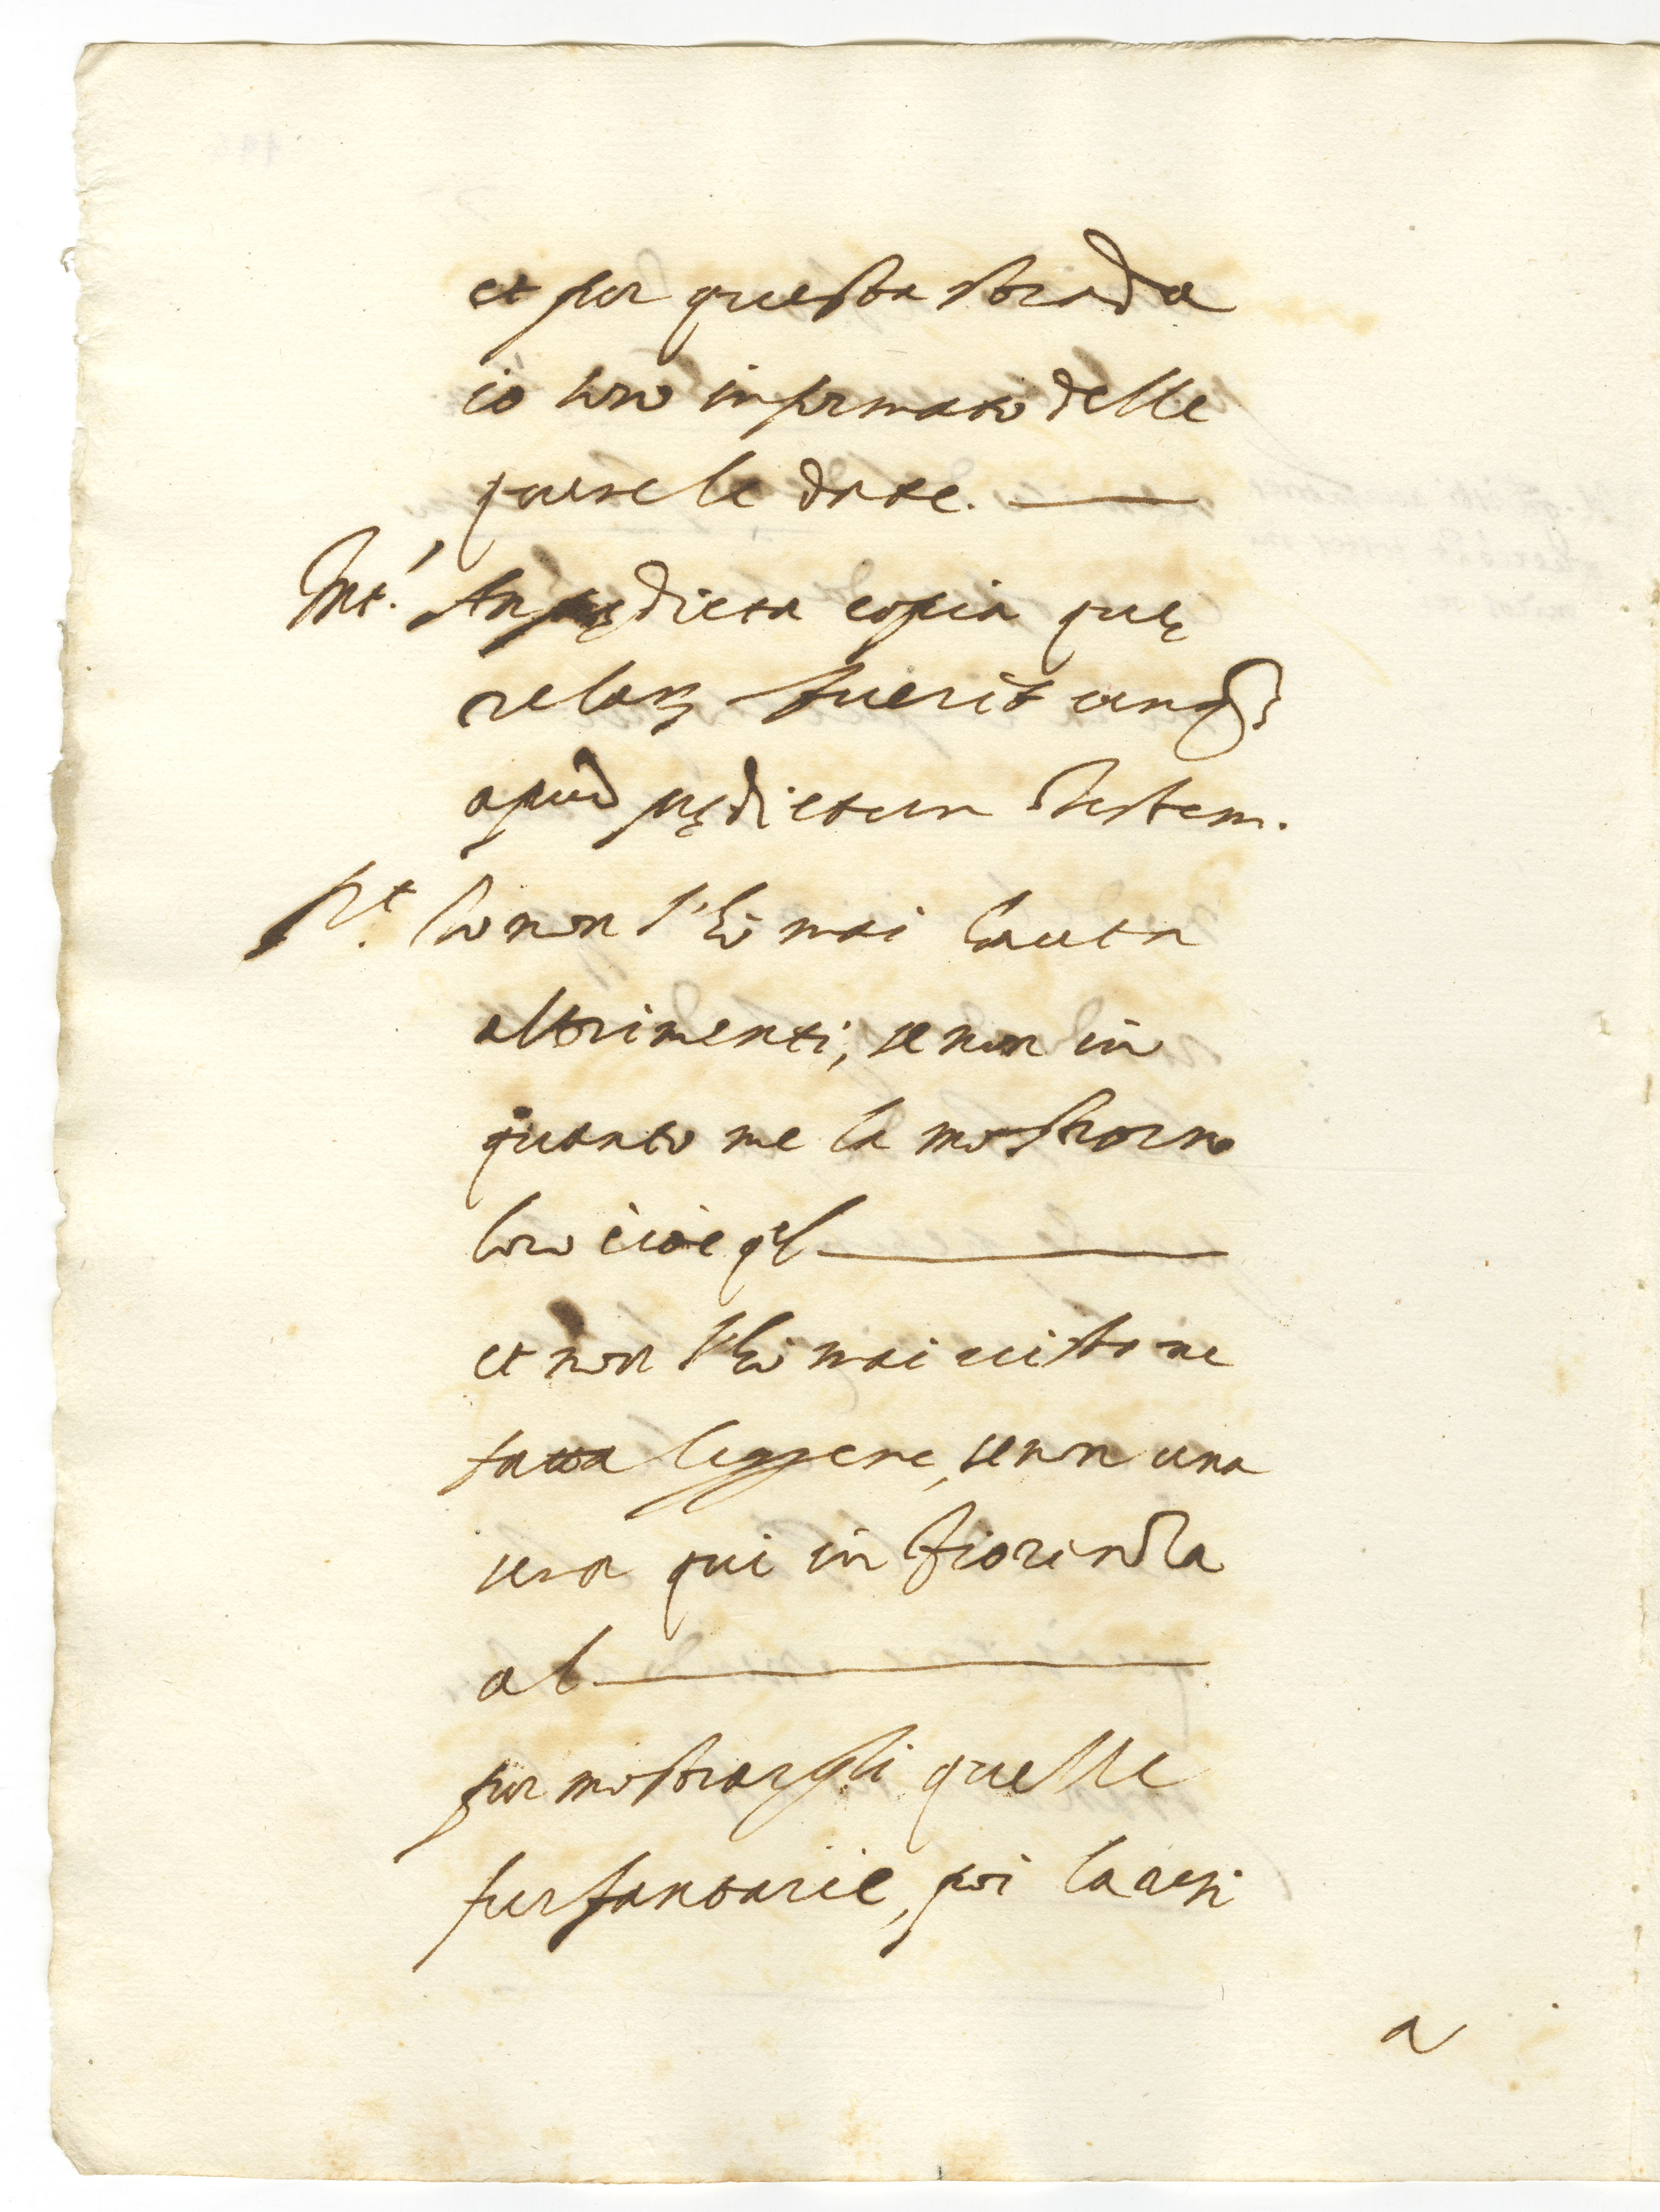 et per questa strada
io sono informato delle
querele date.
Int. An prędicta copia quę
relarum fuerit unq
apud prędictum Testem.
Rt. Io non l'hò mai hauuta
altrimenti, se non in
quanto me la mostrorno
loro cioè ql
et non l'hò mai vista ne
fatta leggere, se non una
sera qui in Fiorenza
al
per mostrargli quelle
furfantarie, poi la resi
a